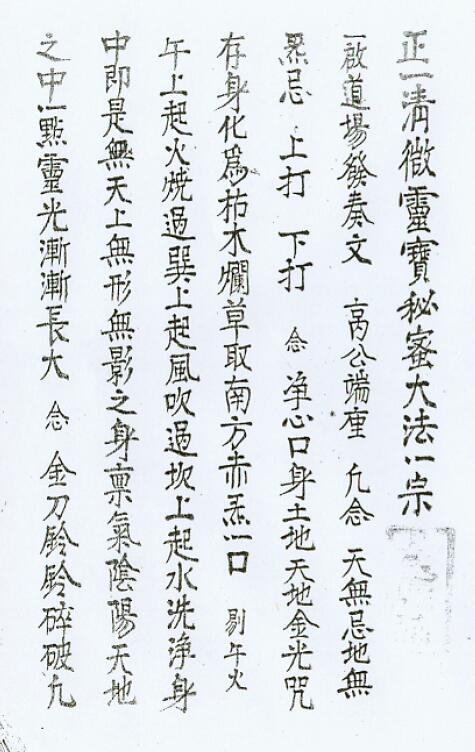 正一清微靈寶秘蜜大法一宗
一啟道場發奏文 高公端座 凢念 天無忌地無
炁忌 上打 下打 念 净心口身土地天地金光咒
存身化為枯木爛草取南方赤炁一口 剔午火
午上起火焼過巽上起風吹過坎上起水洗净身
中即是無天上無形無影之身禀氣陰陽天地
之中一點靈光漸漸長大 念 金刀鈴鈴碎破凢